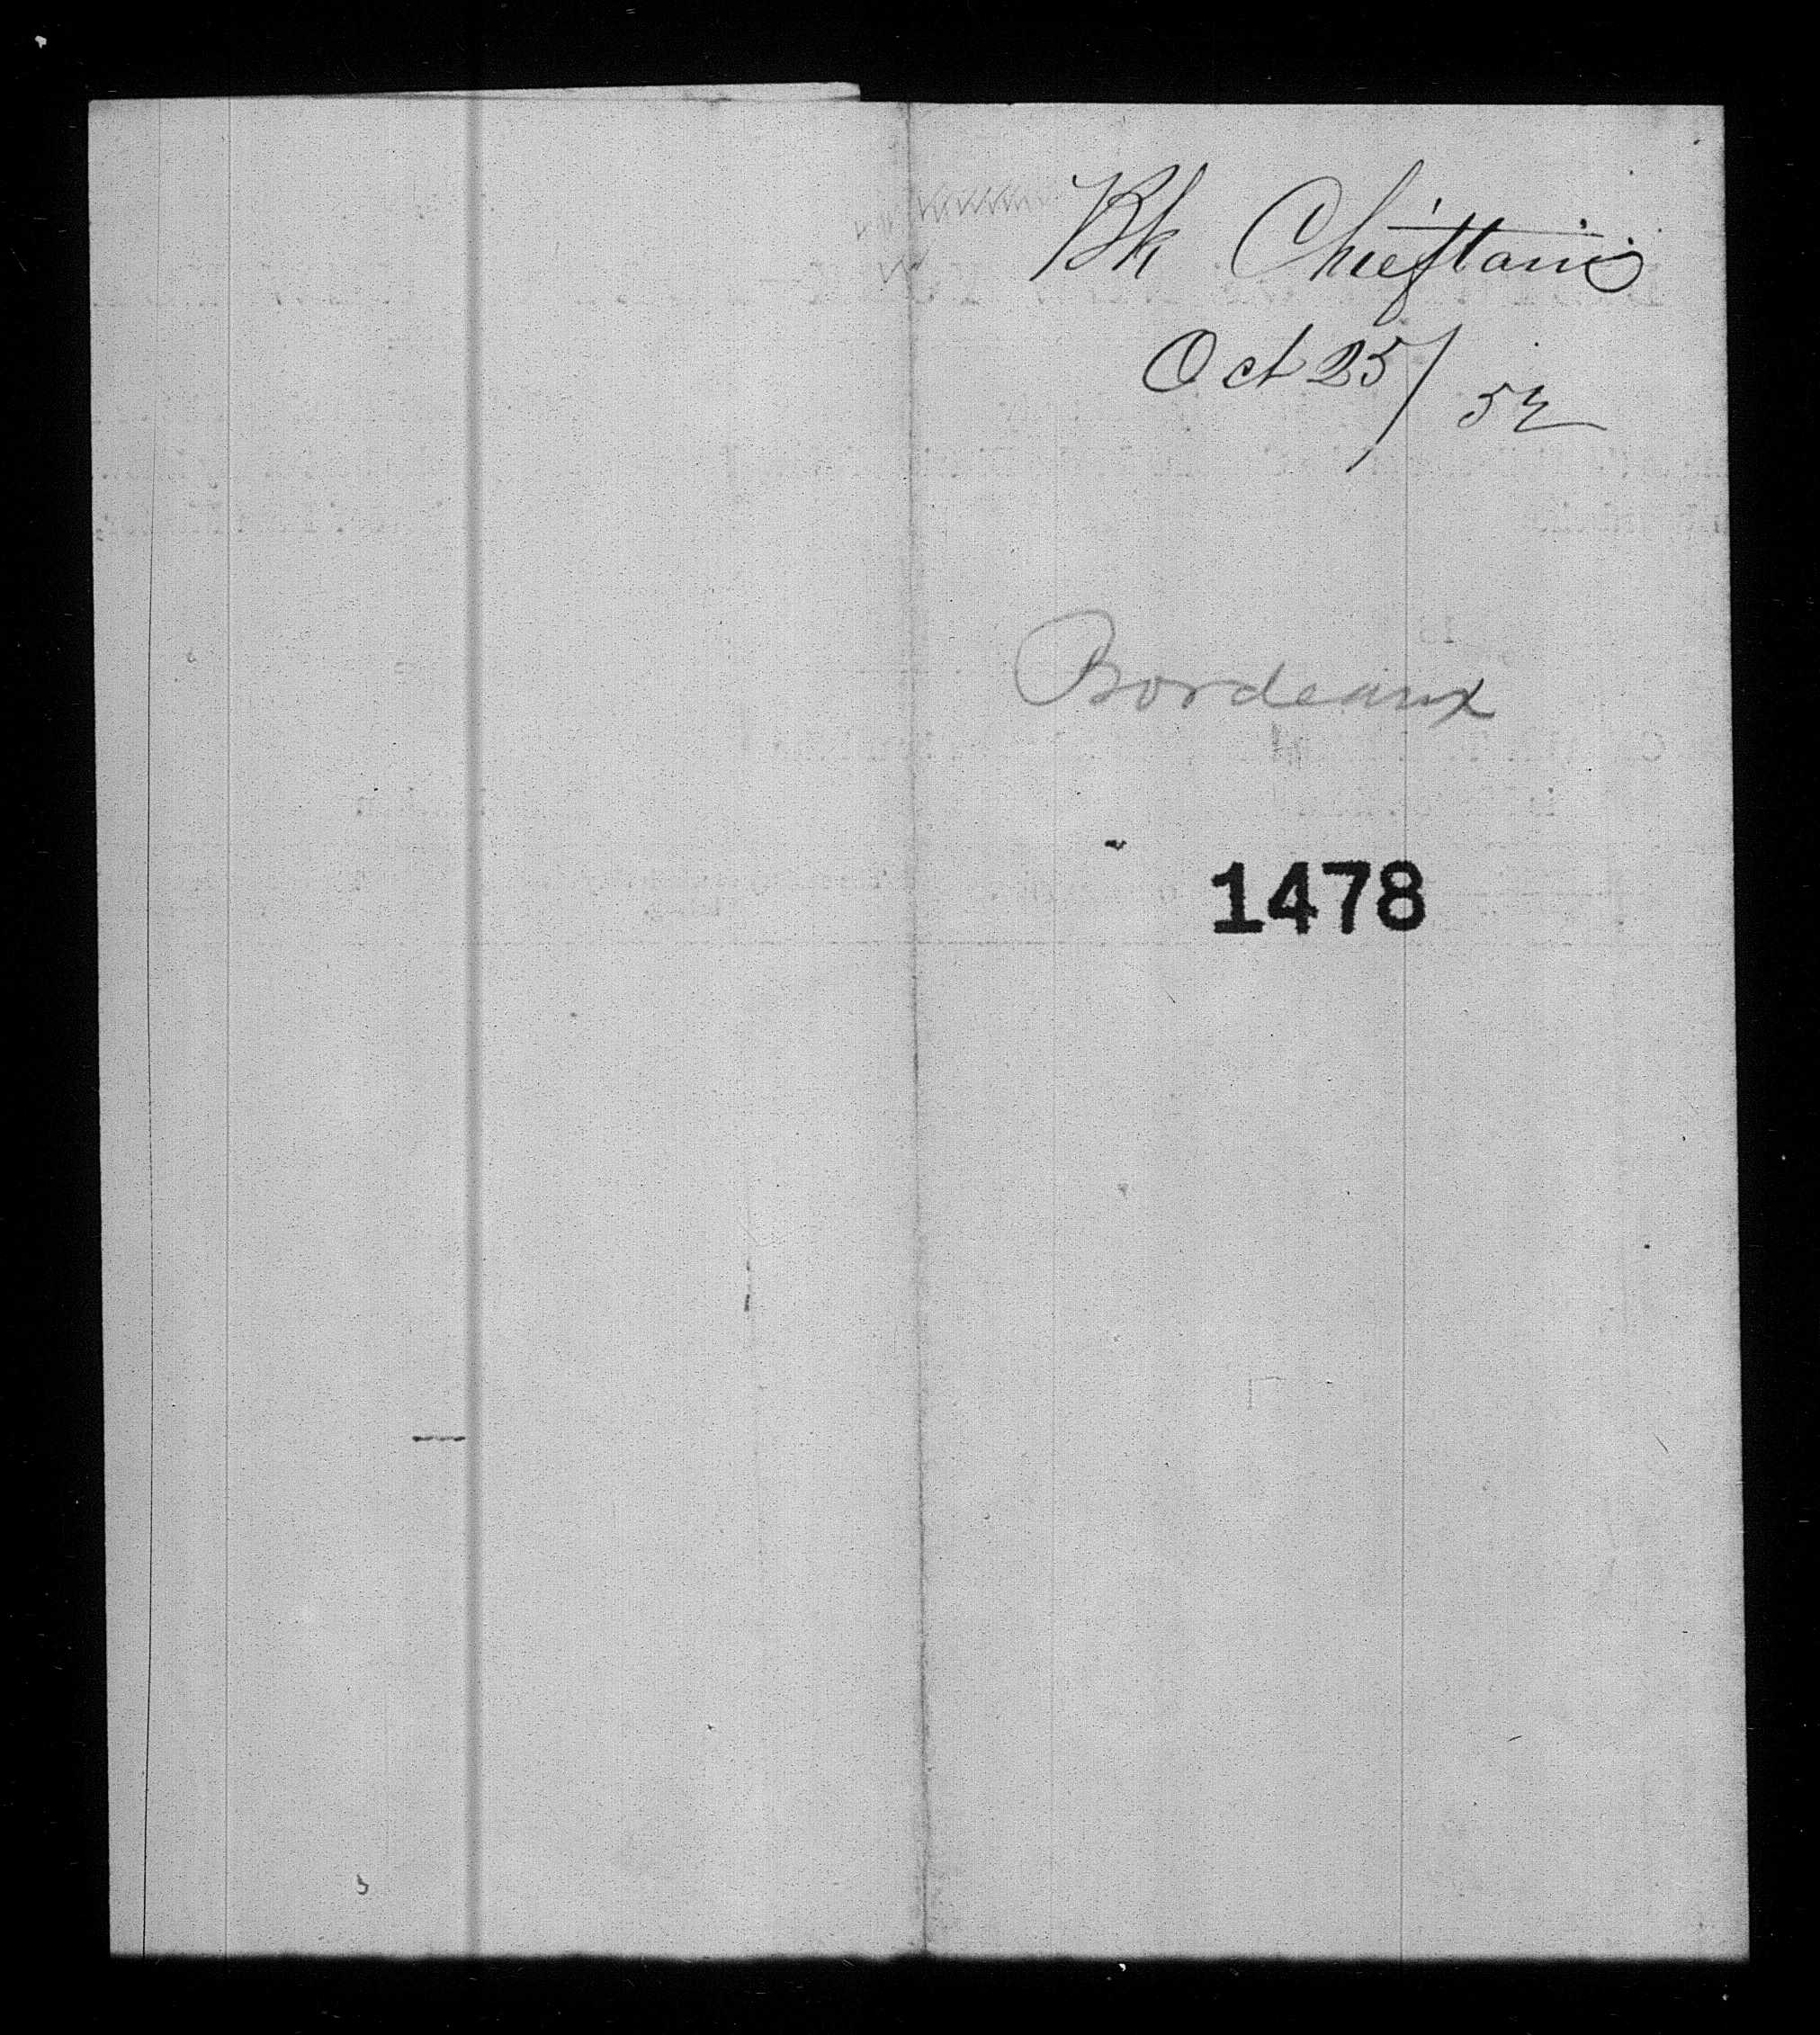 Bk Chieftain
Oct 25/52
Bordeaux
1478